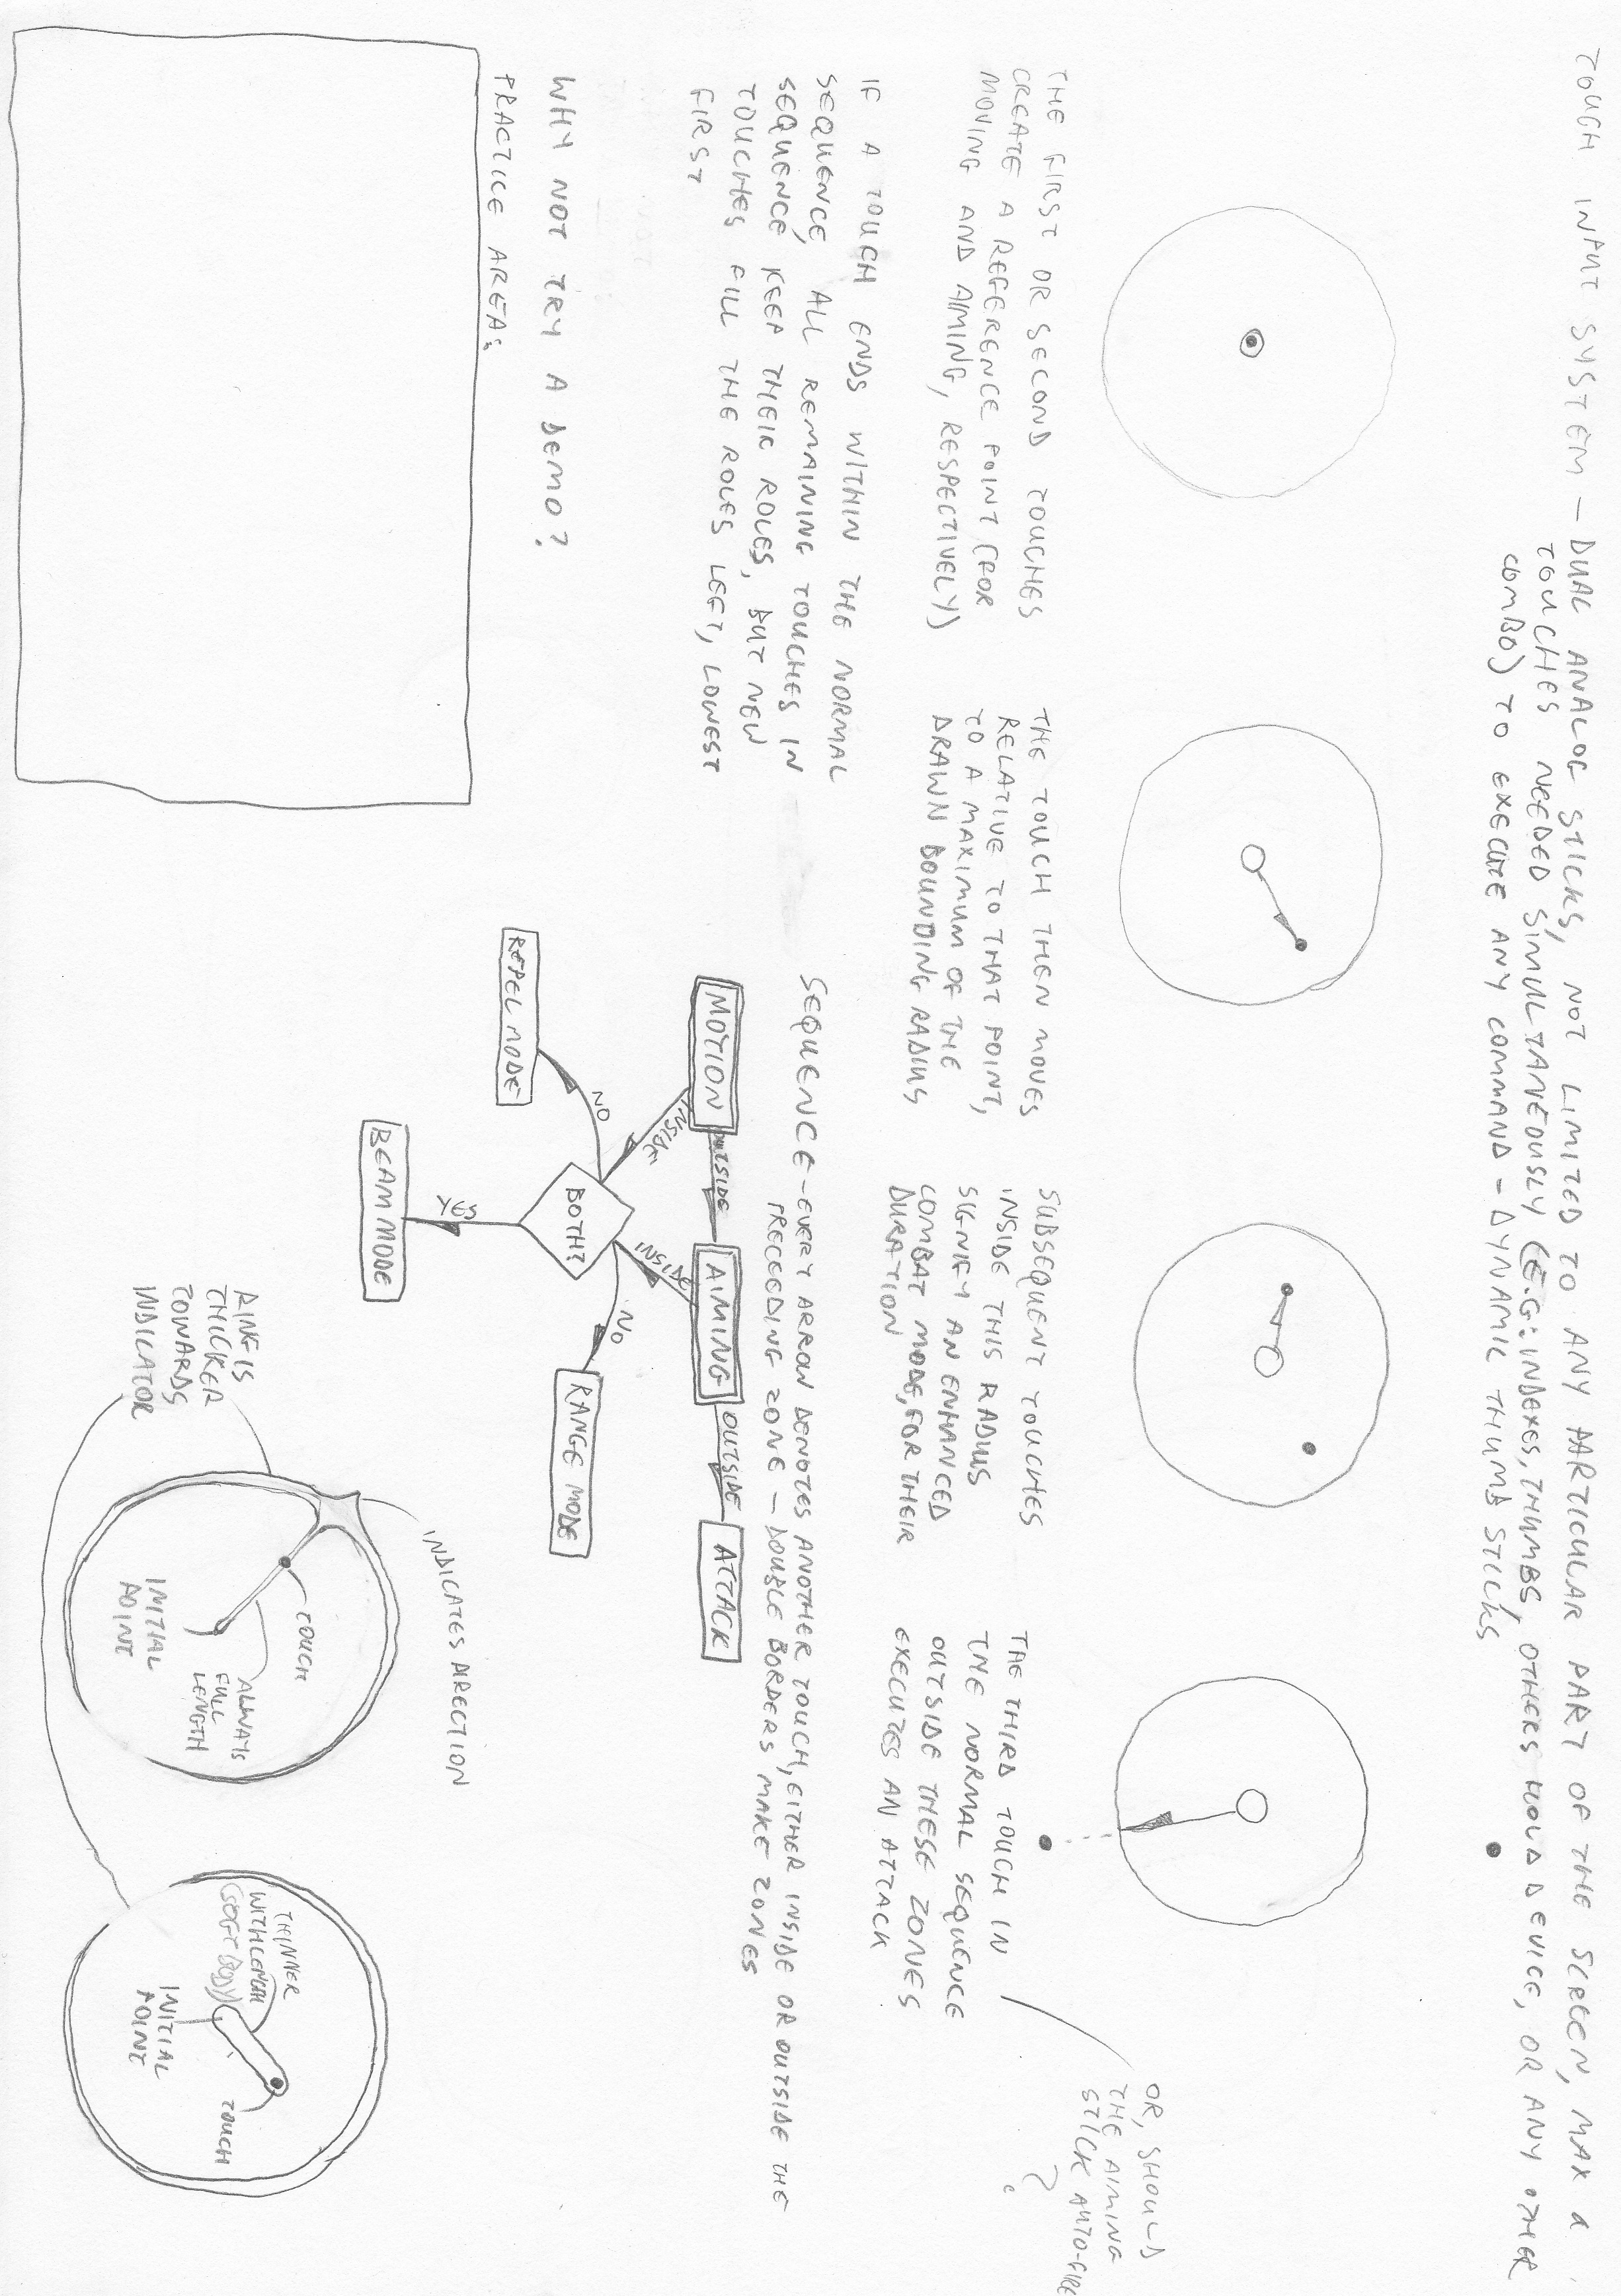 TOUCH INPUT SYSTEM - DUAL ANALOG STICKS, NOT LIMITED TO ANY PARTICULAR PART OF THE SCREEN, MAX 4
TOUCHES NEEDED SIMULTANEOUSLY (E.G: INDEXES, THUMBS, OTHERS HOLD DEVICE, OR ANY OTHER
COMBO) TO EXECUTE ANY COMMAND - DYNAMIC THUMB STICKS
THE FIRST OR SECOND TOUCHES
CREATE A REFERENCE POINT (FOR
MOVING AND AIMING, RESPECTIVELY)
THE TOUCH THEN MOVES
RELATIVE TO THAT POINT,
TO A MAXIMUM OF THE
DRAWN BOUNDING RADIUS
SUBSEQUENT TOUCHES
INSIDE THIS RADIUS
SIGNIFY AN ENHANCED
COMBAT MODE, FOR THEIR
DURATION
THE THIRD TOUCH IN
THE NORMAL SEQUENCE
OUTSIDE THESE ZONES
EXECUTES AN ATTACK
OR, SHOULD
THE AIMING
STICK AUTO-FIRE
?
IF A TOUCH ENDS WITHIN THE NORMAL
SEQUENCE, ALL REMAINING TOUCHES IN
SEQUENCE KEEP THEIR ROLES, BUT NEW
TOUCHES FILL THE ROLES LEFT, LOWEST
FIRST
WHY NOT TRY A DEMO?
PRACTICE AREAS
SEQUENCE - EVERY ARROW DENOTES ANOTHER TOUCH, EITHER INSIDE OR OUTSIDE THE
PRECEDING ZONE - DOUBLE BORDERS MAKE ZONES
MOTION
OUTSIDE
AIMING
OUTSIDE
ATTACK
INSIDE
INSIDE
NO
BOTH?
NO
REPEL MODE
RANGE MODE
YES
BEAM MODE
RING IS
THICKER
TOWARDS
INDICATOR
INDICATES DIRECTION
TOUCH
ALWAYS
FULL
LENGTH
INITIAL
POINT
THINNER
WITH LENGTH
(SOFT BODY)
INITIAL
POINT
TOUCH